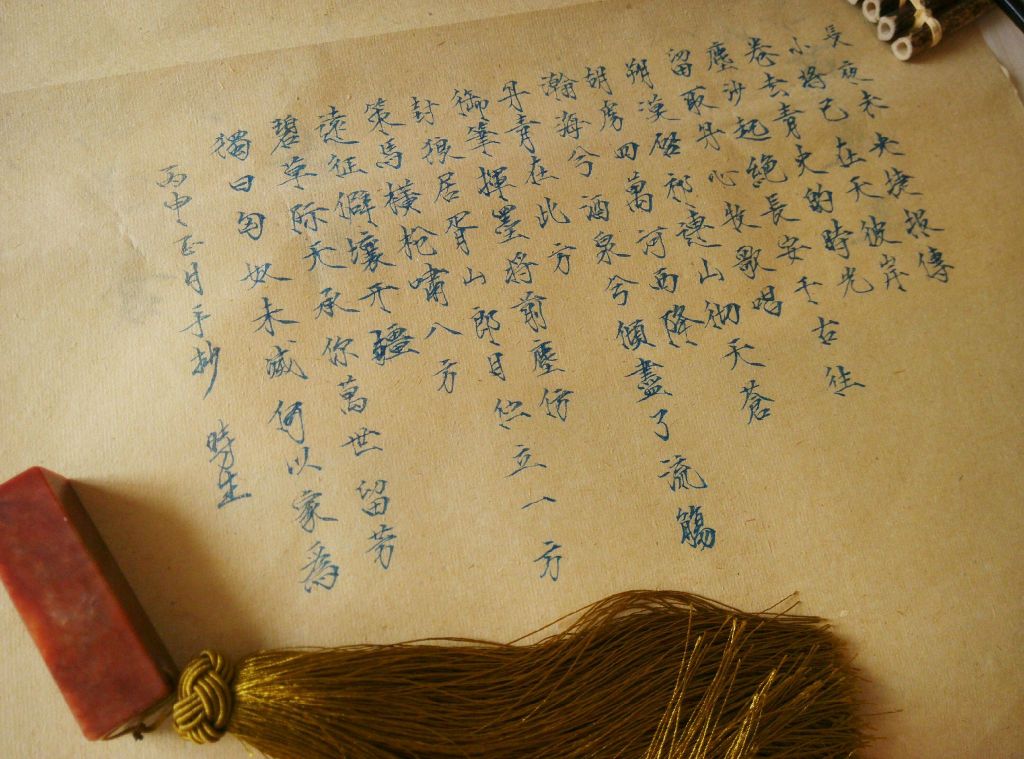 長夜未央捷报傳
小將已在天彼岸
卷去青史的時光
塵沙起絕長安千古往
留取丹心牧歌唱
朔漠啓祁連山彻天蒼
胡虏四萬河西降
瀚海兮酒泉兮傾盡了流觴
丹青在此方
御筆揮墨將前塵仿
封狼居胥山郎目伫立八方
策馬橫枪嘯八方
遠征僻壤开疆
碧草际天承你萬世留芳
獨曰匈奴未滅何以家為
丙申正月手抄 時生